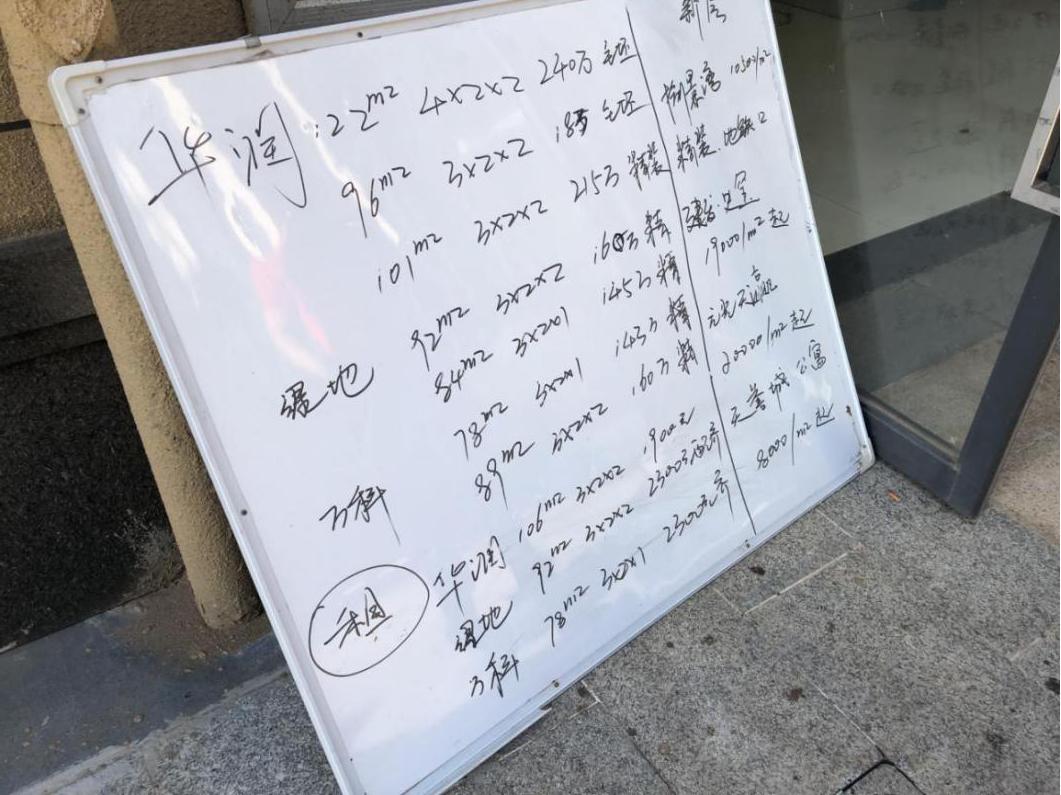 华润 122m² 4×2×2 240万 毛坯
96m² 3×2×2 185 毛坯
101m² 3×2×2 215万 精装
绿地 92m² 3×2×2 160万 精
84m² 3×2×1 145万 精
78m² 3×2×1 143万 精
万科 89m² 3×2×2 160万 精
租 华润 106m² 3×2×2 1900元
绿地 92m² 3×2×2 2300元配齐
万科 78m² 3×2×1 2300元齐
新房
景湾 10500/m²
精装 地铁口
19000/m²起
20000/m²起
公寓
8000/m²起